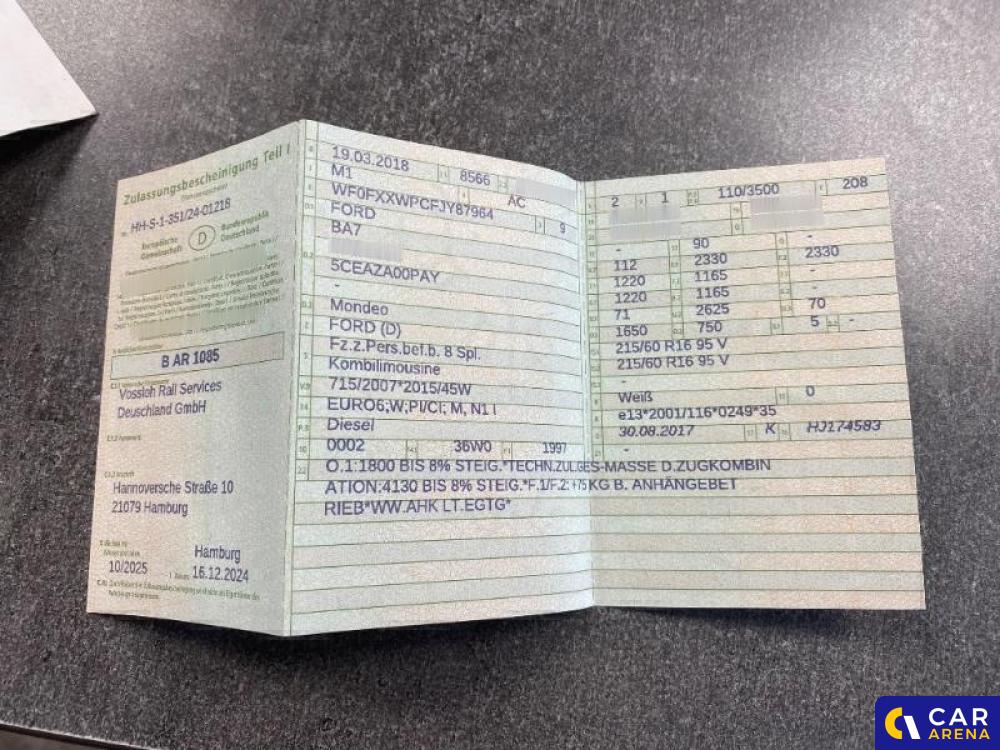 Zulassungsbescheinigung Teil I
HH-S-1-351/24-01218
Europäische
Gemeinschaft
D
Bundesrepublik
Deutschland
B AR 1085
Vossloh Rail Services
Deuschland GmbH
Hannoversche Straße 10
21079 Hamburg
10/2025
Hamburg
16.12.2024
19.03.2018 8566
M1 AC
WF0FXXWPCFJY87964 9
FORD
BA7
5CEAZA00PAY
-
Mondeo
FORD (D)
Fz.z.Pers.bef.b. 8 Spl.
Kombilimousine
715/2007*2015/45W
EURO6;W;PI/CI; M, N1 I
Diesel
0002 36W0 1997
2 1 110/3500 208
- 90 -
112 2330 2330
1220 1165 -
1220 1165 -
71 2625 70
1650 750 5 -
215/60 R16 95 V
215/60 R16 95 V
-
Weiß 0
e13*2001/116*0249*35
30.08.2017 K HJ174583
-
O.1:1800 BIS 8% STEIG.*TECHN.ZUL.GES-MASSE D.ZUGKOMBIN
ATION:4130 BIS 8% STEIG.*F.1/F.2:+75KG B. ANHÄNGEBET
RIEB*WW.AHK LT.EGTG*
CAR
ARENA